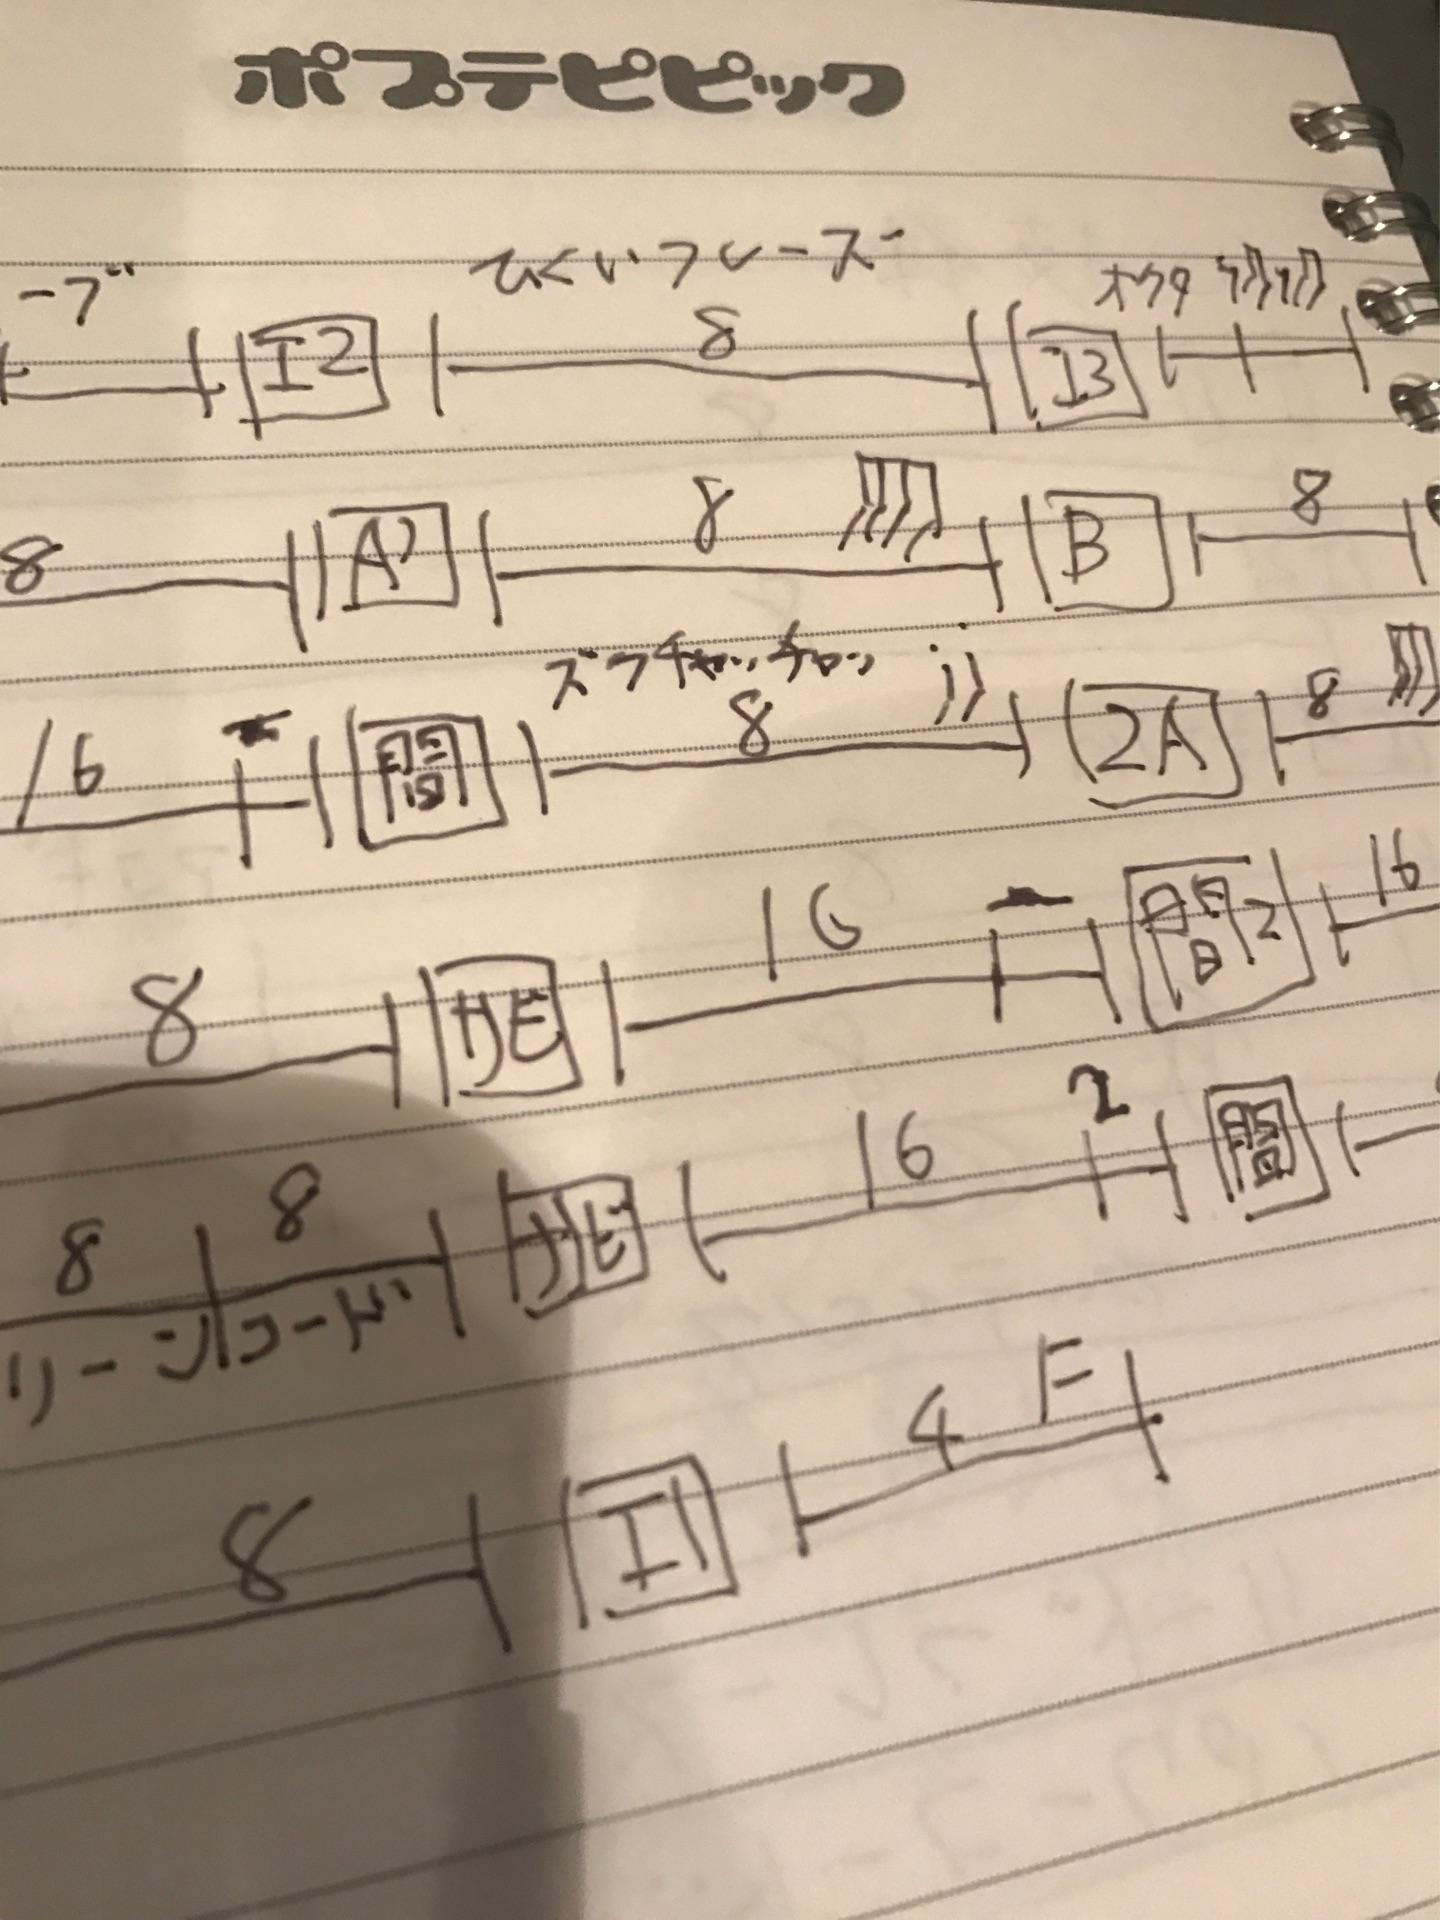 ポプテピピック
ーブ ひくいフレーズ オクタ
I2 8 I3
8 A' 8 B 8
ズクチャッチャッ
16 間 8 2A 8
8 サビ 16 間2 16
8 8 サビ 16 2 間
リーン コード
8 I 4 F